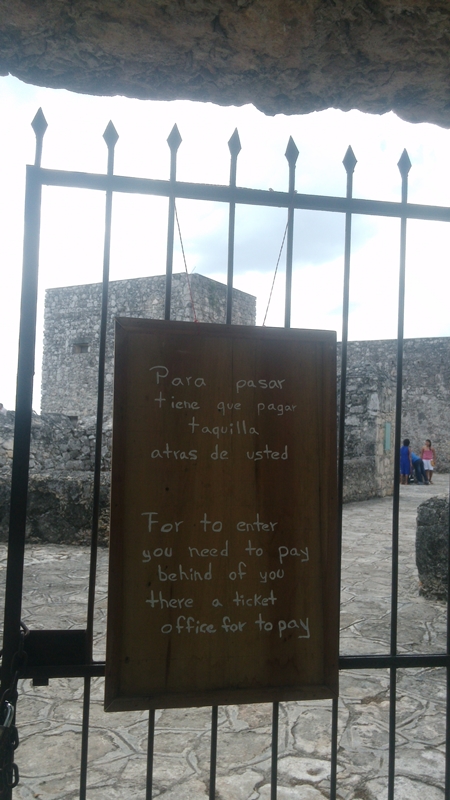 Para pasar
tiene que pagar
taquilla
atras de usted
For to enter
you need to pay
behind of you
there a ticket
office for to pay